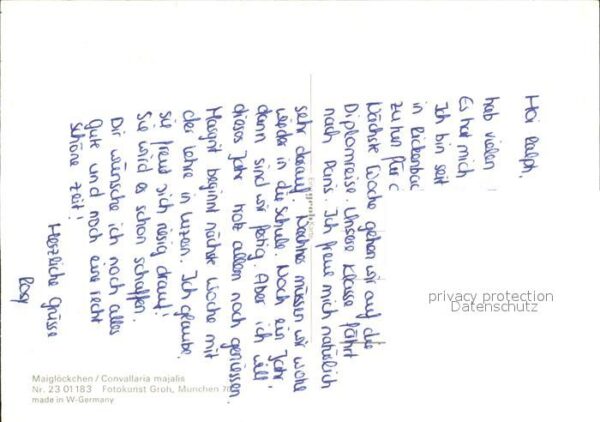 Hoi Ralph,
hab vielen
Es hat mich
Ich bin seit
in Rickenbac
zu tun für d
Nächste Woche gehen wir auf die
Diplomreise. Unsere Klasse fährt
nach Paris. Ich freue mich natürlich
sehr darauf. Nachher müssen wir wohl
wieder in die Schule. Noch ein Jahr,
dann sind wir fertig. Aber ich will
dieses Jahr trotz allem noch geniessen.
Margrit beginnt nächste Woche mit
der Lehre in Luzern. Ich glaube,
sie freut sich riesig drauf!
Sie wird es schon schaffen.
Dir wünsche ich noch alles
gute und noch eine recht
schöne Zeit!
Herzliche Grüsse
Rosy
privacy protection
Datenschutz
Maiglöckchen / Convallaria majalis
Nr. 23 01183 Fotokunst Groh, München
made in W-Germany